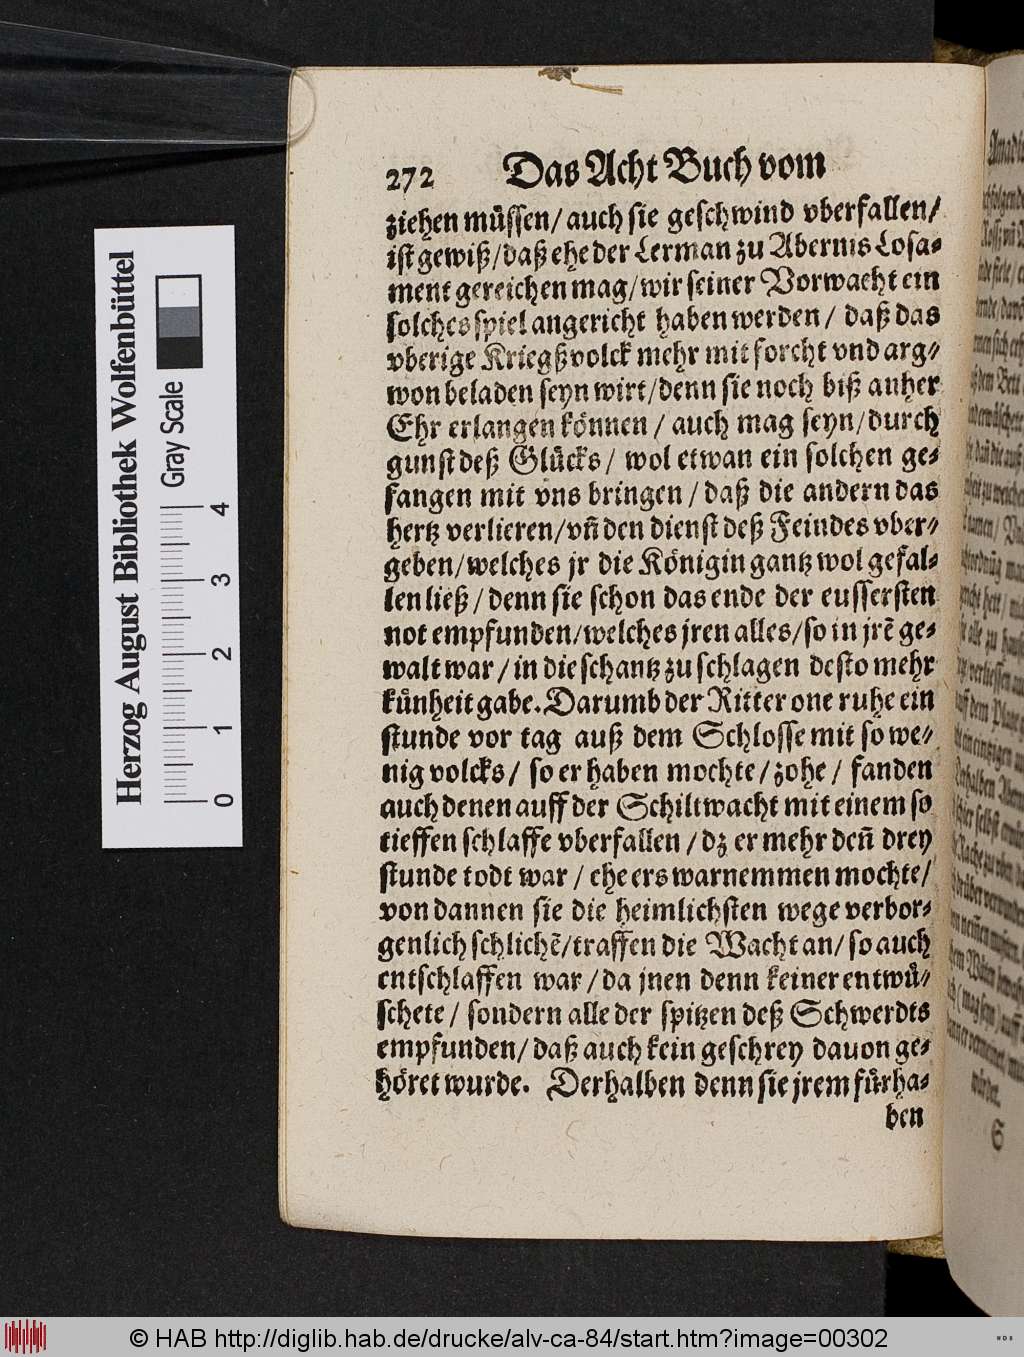 272 Das Acht Buch vom
ziehen müssen/ auch sie geschwind vberfallen/
ist gewiß/daß ehe der Lerman zu Abernis Losa-
ment gereichen mag/wir seiner Vorwacht ein
solches spiel angericht haben werden/ daß das
vberige Kriegßvolck mehr mit forcht vnd arg-
won beladen seyn wirt/denn sie noch biß anher
Ehr erlangen können/ auch mag seyn/durch
gunst deß Glücks/ wol etwan ein solchen ge-
fangen mit vns bringen/daß die andern das
hertz verlieren/vñ den dienst deß Feindes vber-
geben/welches jr die Königin gantz wol gefal-
len ließ/denn sie schon das ende der eussersten
not empfunden/welches jren alles/so in jrẽ ge-
walt war/in die schantz zu schlagen desto mehr
künheit gabe. Darumb der Ritter one ruhe ein
stunde vor tag auß dem Schlosse mit so we-
nig volcks/ so er haben mochte/zohe/ fanden
auch denen auff der Schiltwacht mit einem so
tieffen schlaffe vberfallen/dz er mehr deñ drey
stunde todt war/ ehe ers warnemmen mochte/
von dannen sie die heimlichsten wege verbor-
genlich schlichẽ/traffen die Wacht an/so auch
entschlaffen war/da jnen denn keiner entwü-
schete/ sondern alle der spitzen deß Schwerdts
empfunden/daß auch kein geschrey dauon ge-
höret wurde. Derhalben denn sie jrem fürha-
ben
Herzog August Bibliothek Wolfenbüttel
Gray Scale
0 1 2 3 4
© HAB http://diglib.hab.de/drucke/alv-ca-84/start.htm?image=00302